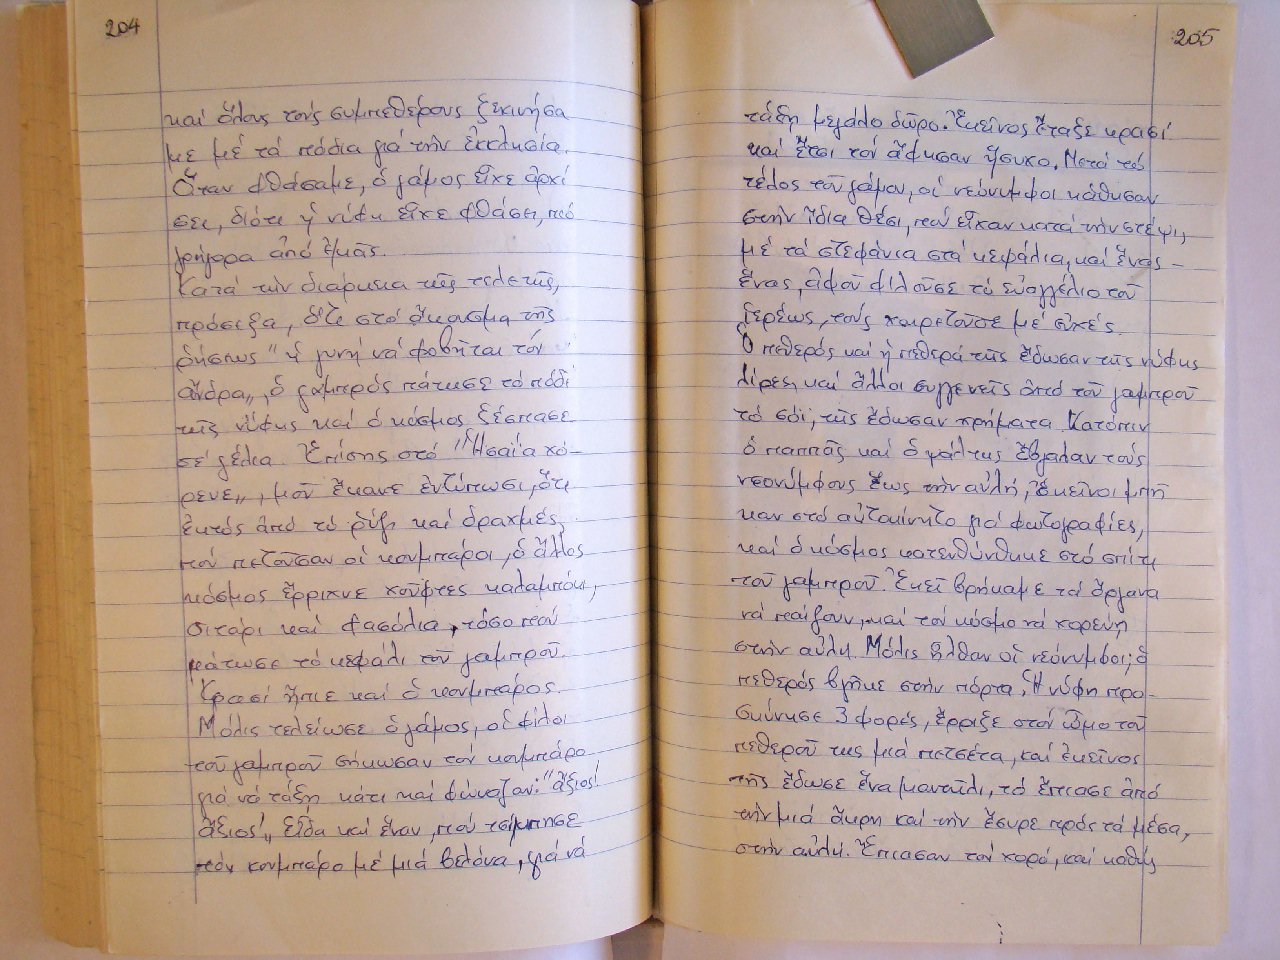 204
καί ὅλους τούς συμπεθέρους ξεκινήσα
με μέ τά πόδια γιά τήν ἐκκλησία.
Ὅταν φθάσαμε, ὁ γάμος εἶχε ἀρχί
σει, διότι ἡ νύφη εἶχε φθάσει, πιό
γρήγορα ἀπό ἐμᾶς.
Κατά τήν διάρκεια τῆς τελετῆς,
πρόσεξα, ὅτι στό ἄκουσμα τῆς
ρήσεως "ἡ γυνή νά φοβῆται τόν
ἄνδρα,, ὁ γαμπρός πάτησε τό πόδι
τῆς νύφης καί ὁ κόσμος ξέσπασε
σέ γέλια. Ἐπίσης στό "Ἠσαΐα χό-
ρευε,,, μοῦ ἔκανε ἐντύπωσι, ὅτι
ἐκτός ἀπό τό ρύζι καί δραχμές,
πού πετοῦσαν οἱ κουμπάροι, ὁ ἄλλος
κόσμος ἔρριχνε χοῦφτες καλαμπόκι,
σιτάρι καί φασόλια, τόσο πού
μάτωσε τό κεφάλι τοῦ γαμπροῦ.
Κρασί ἤπιε καί ὁ κουμπάρος.
Μόλις τελείωσε ὁ γάμος, οἱ φίλοι
τοῦ γαμπροῦ σήκωσαν τόν κουμπάρο
γιά νά τάξη κάτι καί φώναζαν: "ἄξιος!
ἄξιος!,, Εἶδα καί ἕναν, πού τσίμπησε
τόν κουμπάρο μέ μιά βελόνα, γιά νά
205
τάξη μεγάλο δῶρο. Ἐκεῖνος ἔταξε κρασί
καί ἔτσι τόν ἄφησαν ἥσυχο. Μετά τό
τέλος τοῦ γάμου, οἱ νεόνυμφοι κάθησαν
στήν ἴδια θέσι, πού εἶχαν κατά τήν στέψι,
μέ τά στεφάνια στά κεφάλια, καί ἕνας-
ἕνας, ἀφοῦ φιλοῦσε τό εὐαγγέλιο τοῦ
ἱερέως, τούς χαιρετοῦσε μέ εὐχές.
Ὁ πεθερός καί ἡ πεθερά τῆς ἔδωσαν τῆς νύφης
λίρες, καί ἄλλοι συγγενεῖς ἀπό τοῦ γαμπροῦ
τό σόι, τῆς ἔδωσαν χρήματα. Κατόπιν
ὁ παππᾶς καί ὁ ψάλτης ἔβγαλαν τούς
νεονύμφους ἕως τήν αὐλή, ἐκεῖνοι μπῆ
καν στό αὐτοκίνητο γιά φωτογραφίες,
καί ὁ κόσμος κατευθύνθηκε στό σπίτι
τοῦ γαμπροῦ. Ἐκεῖ βρήκαμε τά ὄργανα
νά παίζουν, καί τόν κόσμο νά χορεύη
στήν αὐλή. Μόλις ἦλθαν οἱ νεόνυμφοι, ὁ
πεθερός βγῆκε στήν πόρτα. Ἡ νύφη προ-
σκύνησε 3 φορές, ἔρριξε στόν ὦμο τοῦ
πεθεροῦ της μιά πετσέτα, καί ἐκεῖνος
τῆς ἔδωσε ἕνα μαντῆλι, τό ἔπιασε ἀπό
τήν μιά ἄκρη καί τήν ἔσυρε πρός τά μέσα,
στήν αὐλή. Ἔπιασαν τόν χορό, καί καθώς